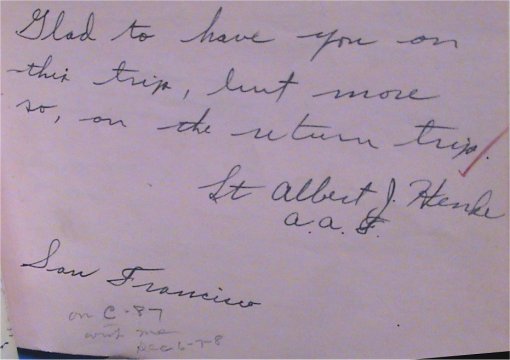 Glad to have you on
this trip, but more
so, on the return trip.
Lt Albert J. Henke
a.a.F.
San Francisco
on C-87
with me
Dec 6-7-8